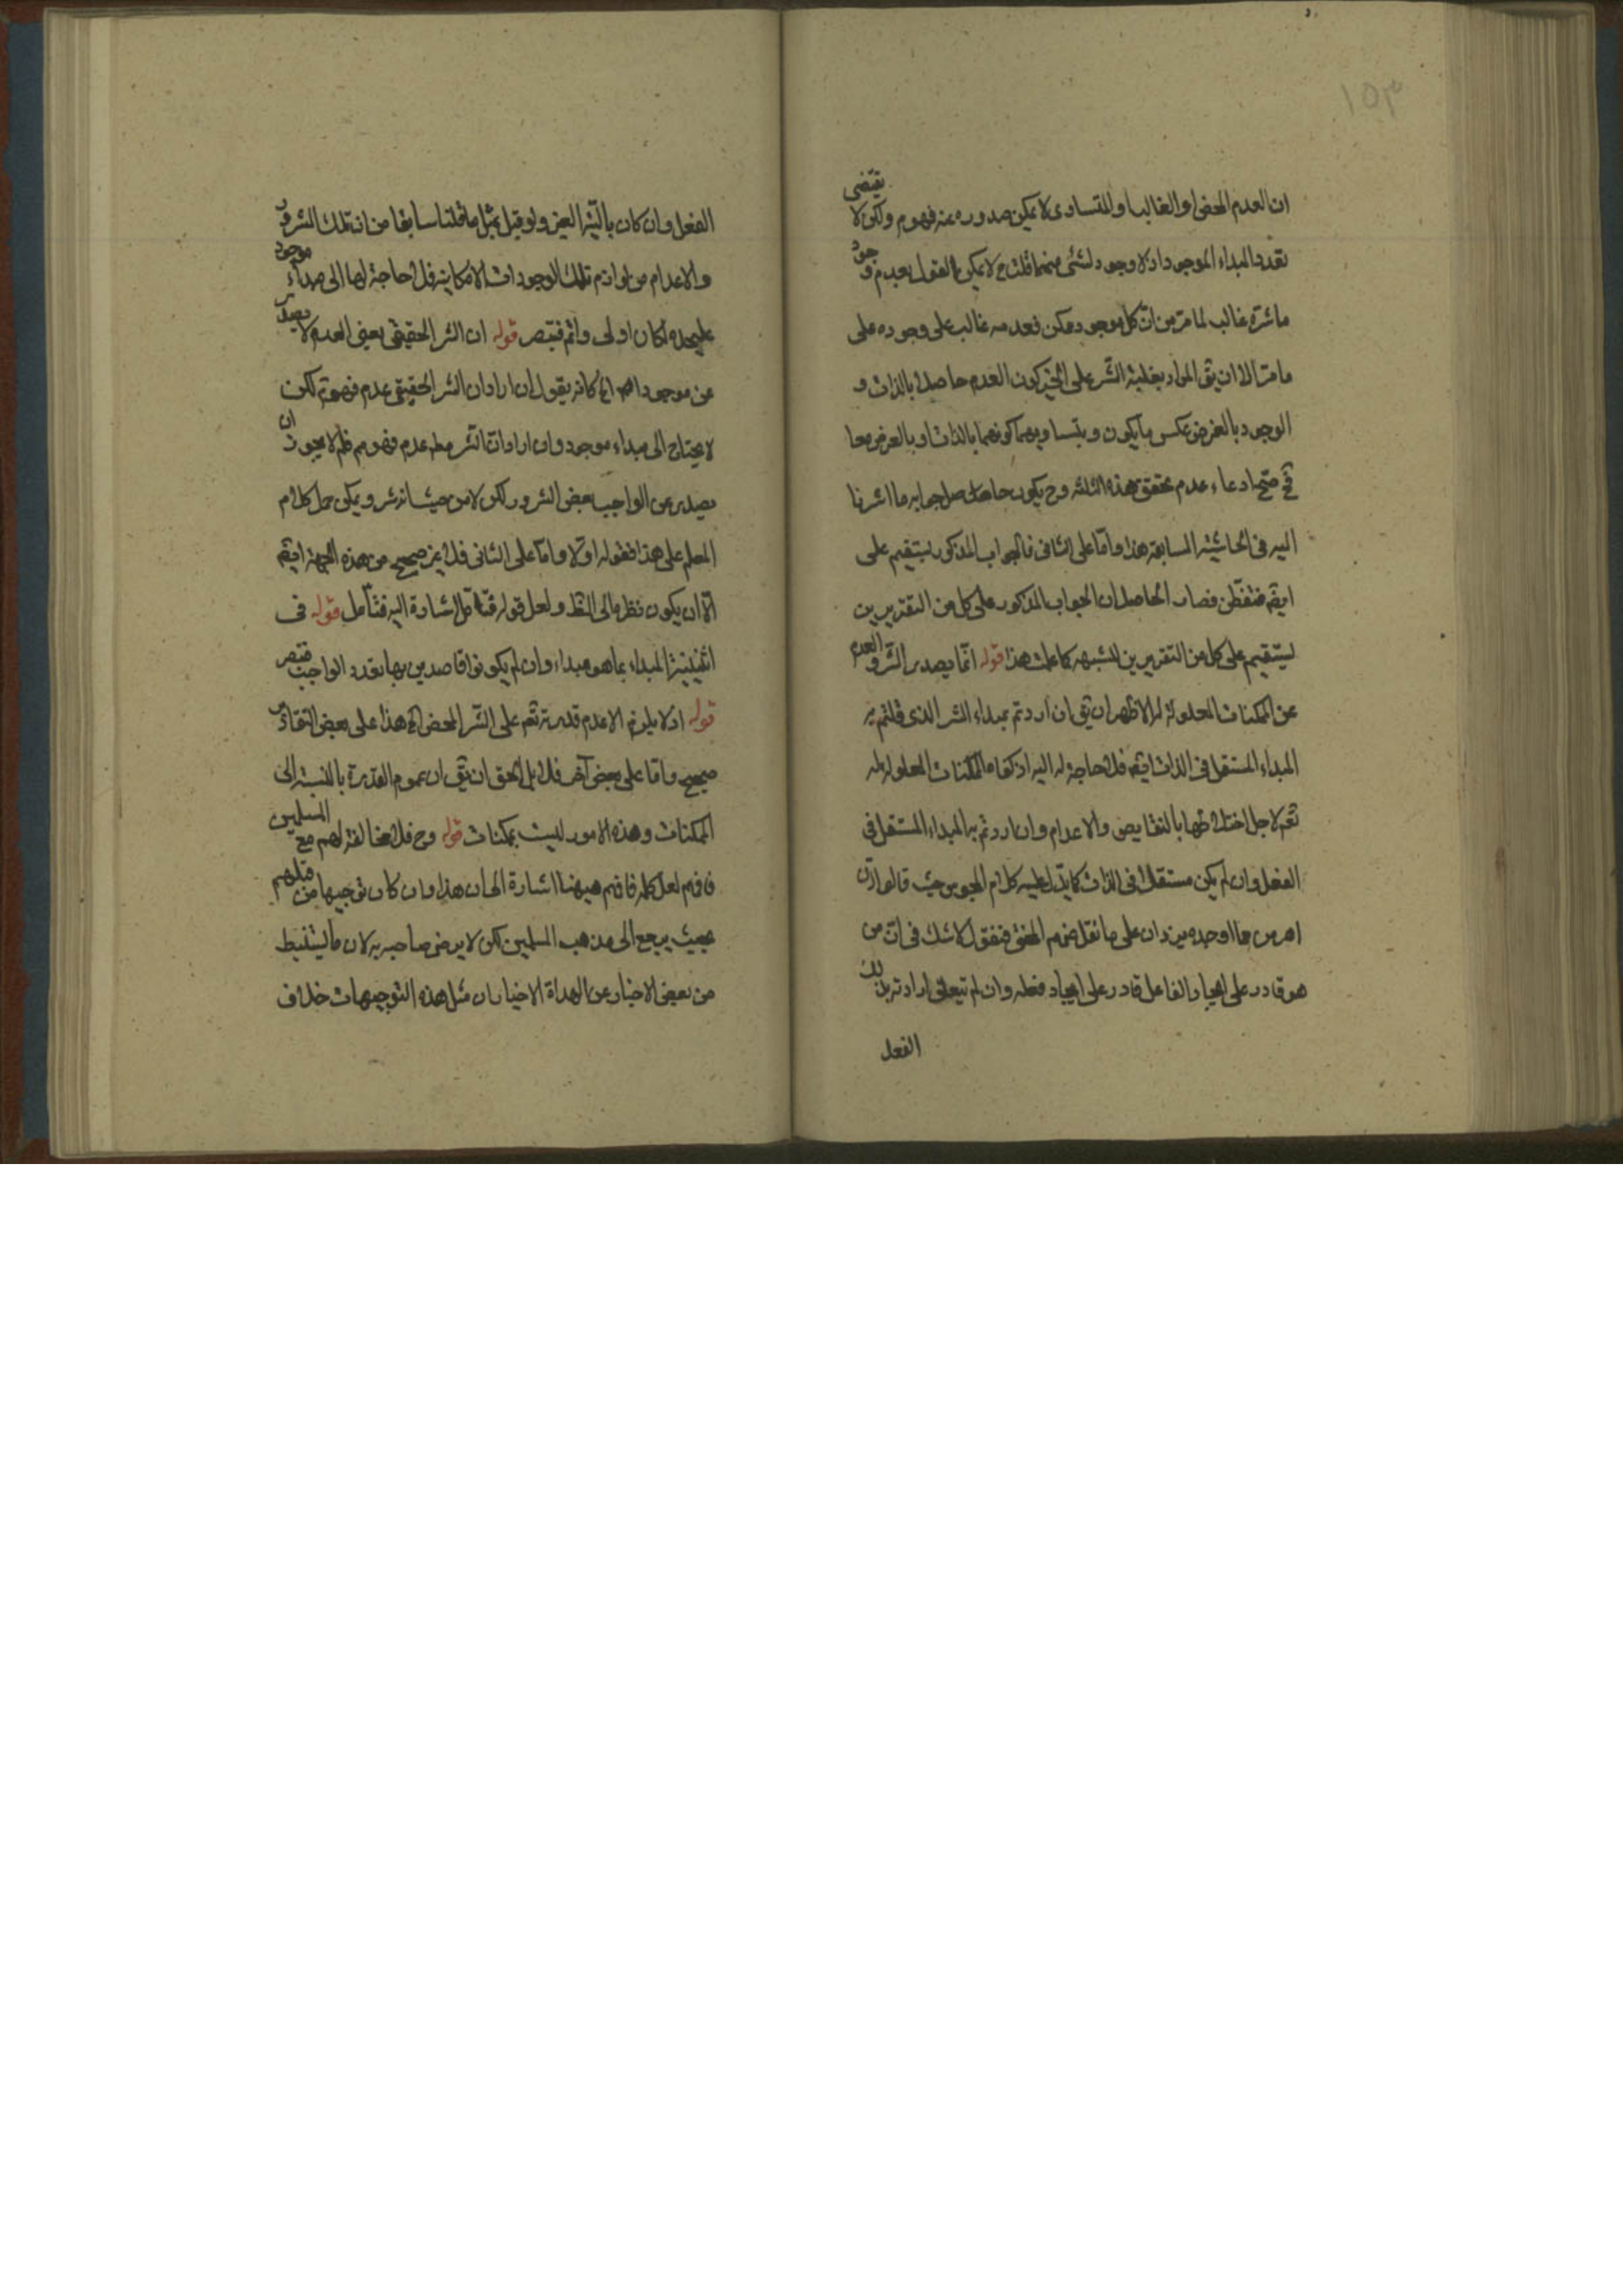 ١٥٣
ان العدم المحض او الغالب او المتساوى لا يمكن صدوره عنه فهو م ولكن لا يقتضى
تعدد المبداء الموجود اذ لا وجود لشئ منهما قلت ح لا يمكن القول بعدم وجود
ما شره غالب لما مر من ان كل موجود ممكن فعدمه غالب على وجوده على
ما مر الا ان يق المراد بغلبة الشر على الخير كون العدم حاصلا بالذات و
الوجود بالعرض عكس ما يكون و بتساويهما كونهما بالذات او بالعرض معا
فح صح ادعاء عدم تحقق هذه الثلثه وح يكون حاصل جوابه ما اشرنا
اليه فى الحاشية السابقة هذا و اما على الثانى فالجواب المذكور يستقيم على
ايضا فتفطن فصار الحاصل ان الجواب المذكور على كل من التقريرين
يستقيم على كل من التقريرين للشبهه كما علمت هذا قوله انما يصدر الشر و العدم
عن الممكنات المعلولة له الاظهر ان يق ان اردتم بمبداء الشر الذى قلتم به
المبداء المستقل فى الذات ايضا فلا حاجة له اليه اذ كفاه الممكنات المعلولة له
تعم لاجل اختلاطها بالنقايص والاعدام وان اردتم به المبداء المستقل فى
الفعل وان لم يكن مستقلا فى الذات كما يدل عليه كلام المجوس حيث قالوا ان
اهرمن مما اوجده يزدان على ما نقل عنهم المحقق فنقول لا شك فى ان من
هو قادر على ايجاد الفاعل قادر على ايجاد فعله وان لم يتعلق ارادته بذلك
الفعل
الفعل وان كان بالنسبة العين و لو قيل بمثل ما قلنا سابقا من ان تلك الشرور
والاعدام من لوازم تلك الوجودات الامكانية فلا حاجة لها الى مبداء موجود
عليحده لكان اولى و اتم فتبصر قوله ان الشر الحقيقى يعنى العدم لا يصدر
عن موجود اصلا الخ كانه يقول ان اراد ان الشر الحقيقى عدم فهو م لكن
لا يحتاج الى مبداء موجود وان اراد ان الشر مطلقا عدم فهو م فلم لا يجوز ان
يصدر عن الواجب بعض الشرور لكن لا من حيث انه شر و يمكن حمل كلام
المعلم على هذا فقوله اولا و اما على الثانى فلا غير صحيح من هذه الجهة ايضا
الا ان يكون نظره الى الظ و لعل قوله فتامل اشارة اليه فتأمل قوله فى
اثنينية المبداء بما هو مبداء وان لم يكونوا قاصدين بها تعدد الواجب فتبصر
قوله اذ لا يلزم الا عدم قدرته تعم على الشر المحض الخ هذا على بعض التقادير
صحيح و اما على بعض آخر فلا بل الحق ان يق ان عموم القدرة بالنسبة الى
الممكنات و هذه الامور ليست بممكنات قوله وح فلا مخالفة لهم مع المسلمين
فافهم لعل كلمة فافهم هيهنا اشارة الى ان هذا وان كان توجيها من قبلهم
بحيث يرجع الى مذهب المسلمين لكن لا يرضى صاحبه به لان ما يستنبط
من بعض الاخبار عن الهداة الاخيار ان مثل هذه التوجيهات خلاف